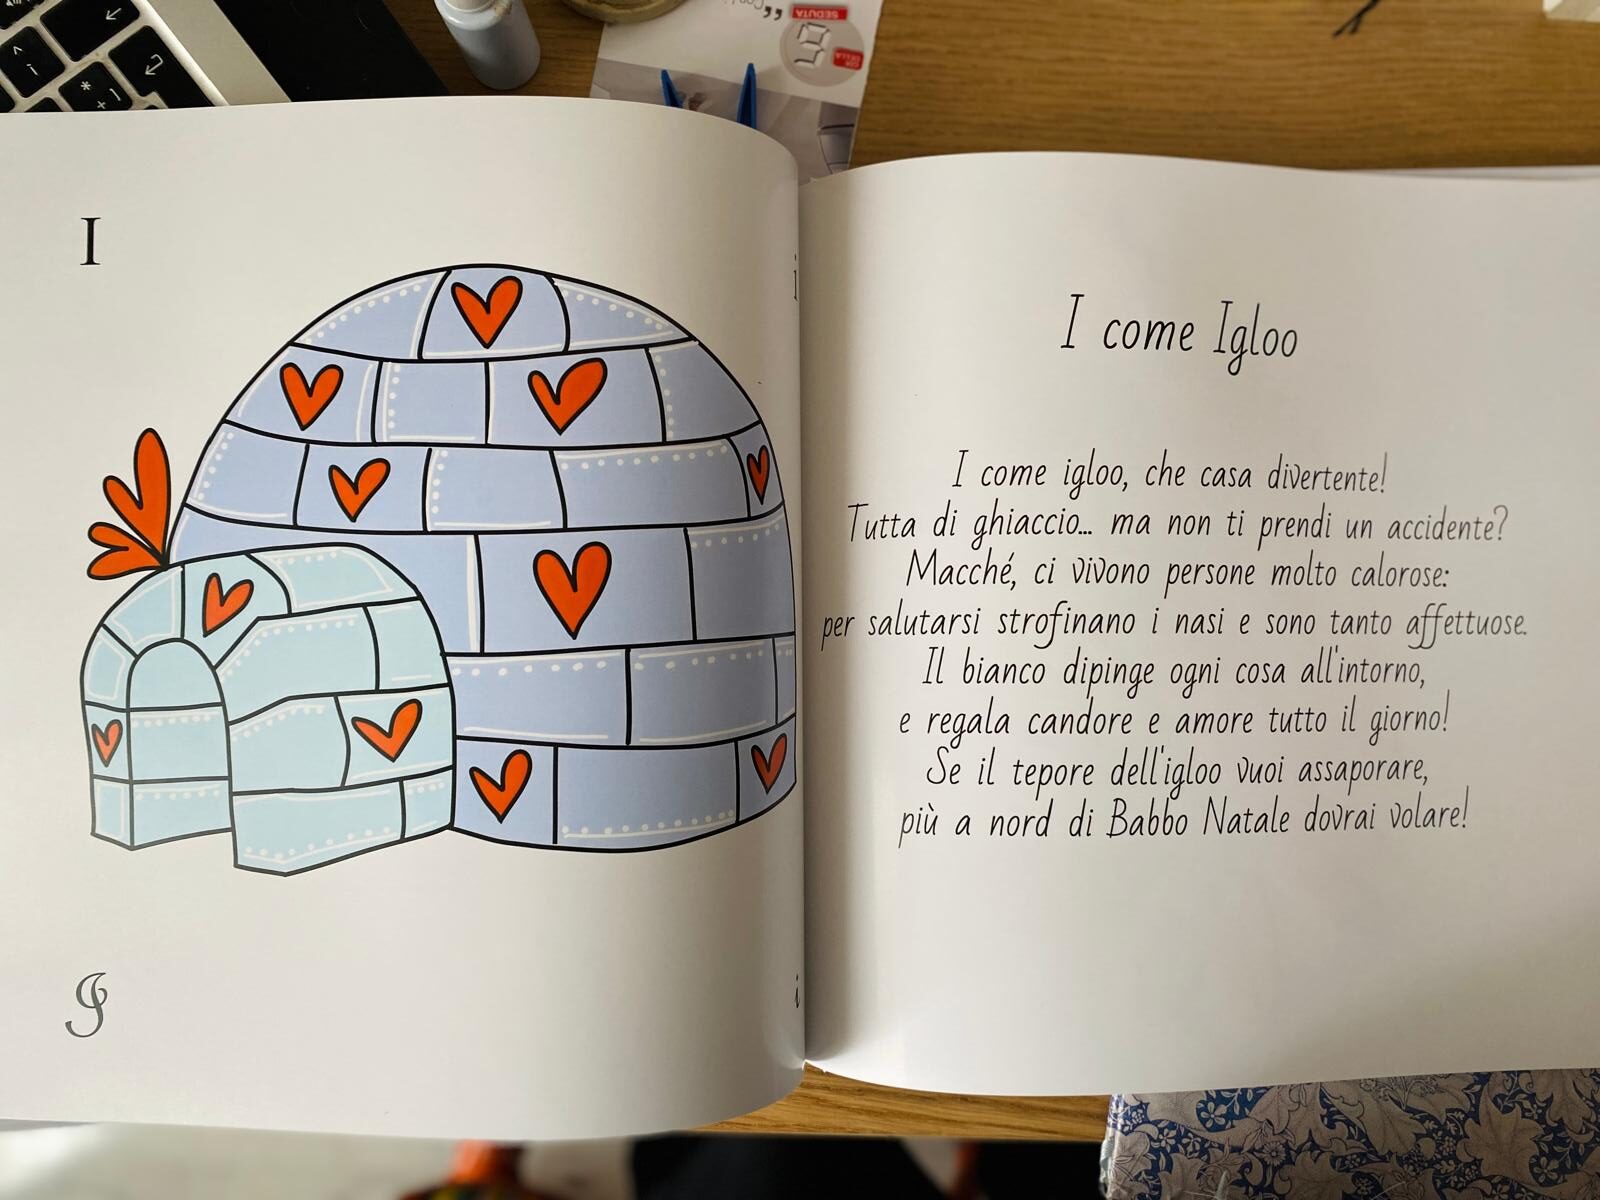 SEDUTA
I
i
I come Igloo
I come igloo, che casa divertente!
Tutta di ghiaccio... ma non ti prendi un accidente?
Macché, ci vivono persone molto calorose:
per salutarsi strofinano i nasi e sono tanto affettuose.
Il bianco dipinge ogni cosa all'intorno,
e regala candore e amore tutto il giorno!
Se il tepore dell'igloo vuoi assaporare,
più a nord di Babbo Natale dovrai volare!
I
i